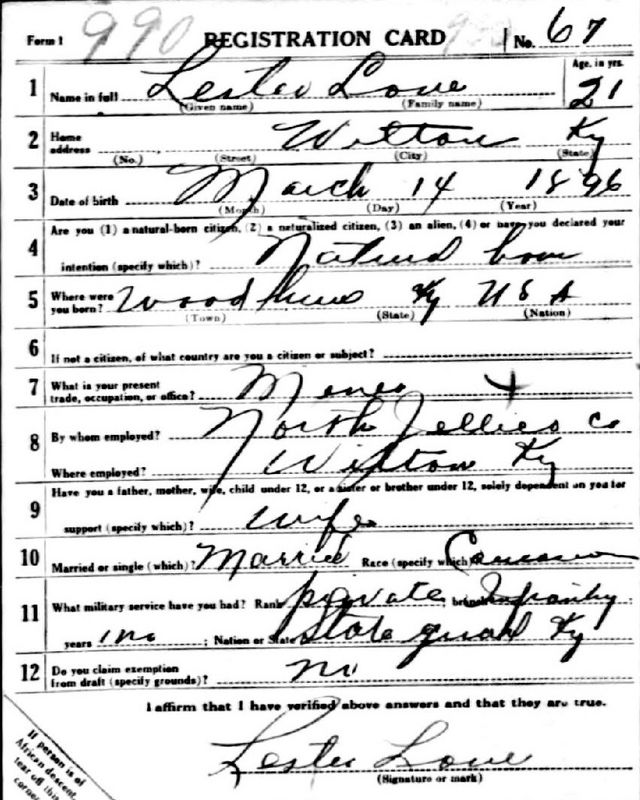 Form 1 990 REGISTRATION CARD No. 67
1 Name in full Lester Lowe Age, in yrs. 21
(Given name) (Family name)
2 Home address Wilton Ky
(No.) (Street) (City) (State)
3 Date of birth March 14 1896
(Month) (Day) (Year)
4 Are you (1) a natural-born citizen, (2) a naturalized citizen, (3) an alien, (4) or have you declared your
intention (specify which)? Natural born
5 Where were you born? Woodbine Ky U S A
(Town) (State) (Nation)
6 If not a citizen, of what country are you a citizen or subject?
7 What is your present trade, occupation, or office? Miner
8 By whom employed? North Jellico Co
Where employed? Wilton Ky
9 Have you a father, mother, wife, child under 12, or a sister or brother under 12, solely dependent on you for
support (specify which)? Wife
10 Married or single (which)? Married Race (specify which)? Caucasian
11 What military service have you had? Rank private ; branch Infantry ;
years 1 mo ; Nation or State State guard Ky
12 Do you claim exemption from draft (specify grounds)? No
I affirm that I have verified above answers and that they are true.
Lester Lowe
(Signature or mark)
If person is of
African descent,
tear off this
corner